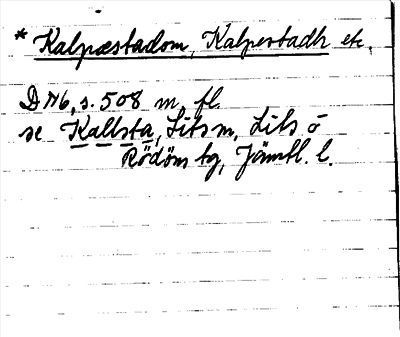 * Kalpæstadom, Kalpestadh etc.
D N6, s. 508 m. fl.
se Kallsta, Lits sn, Lits o
Rödöns tg, Jämtl. l.